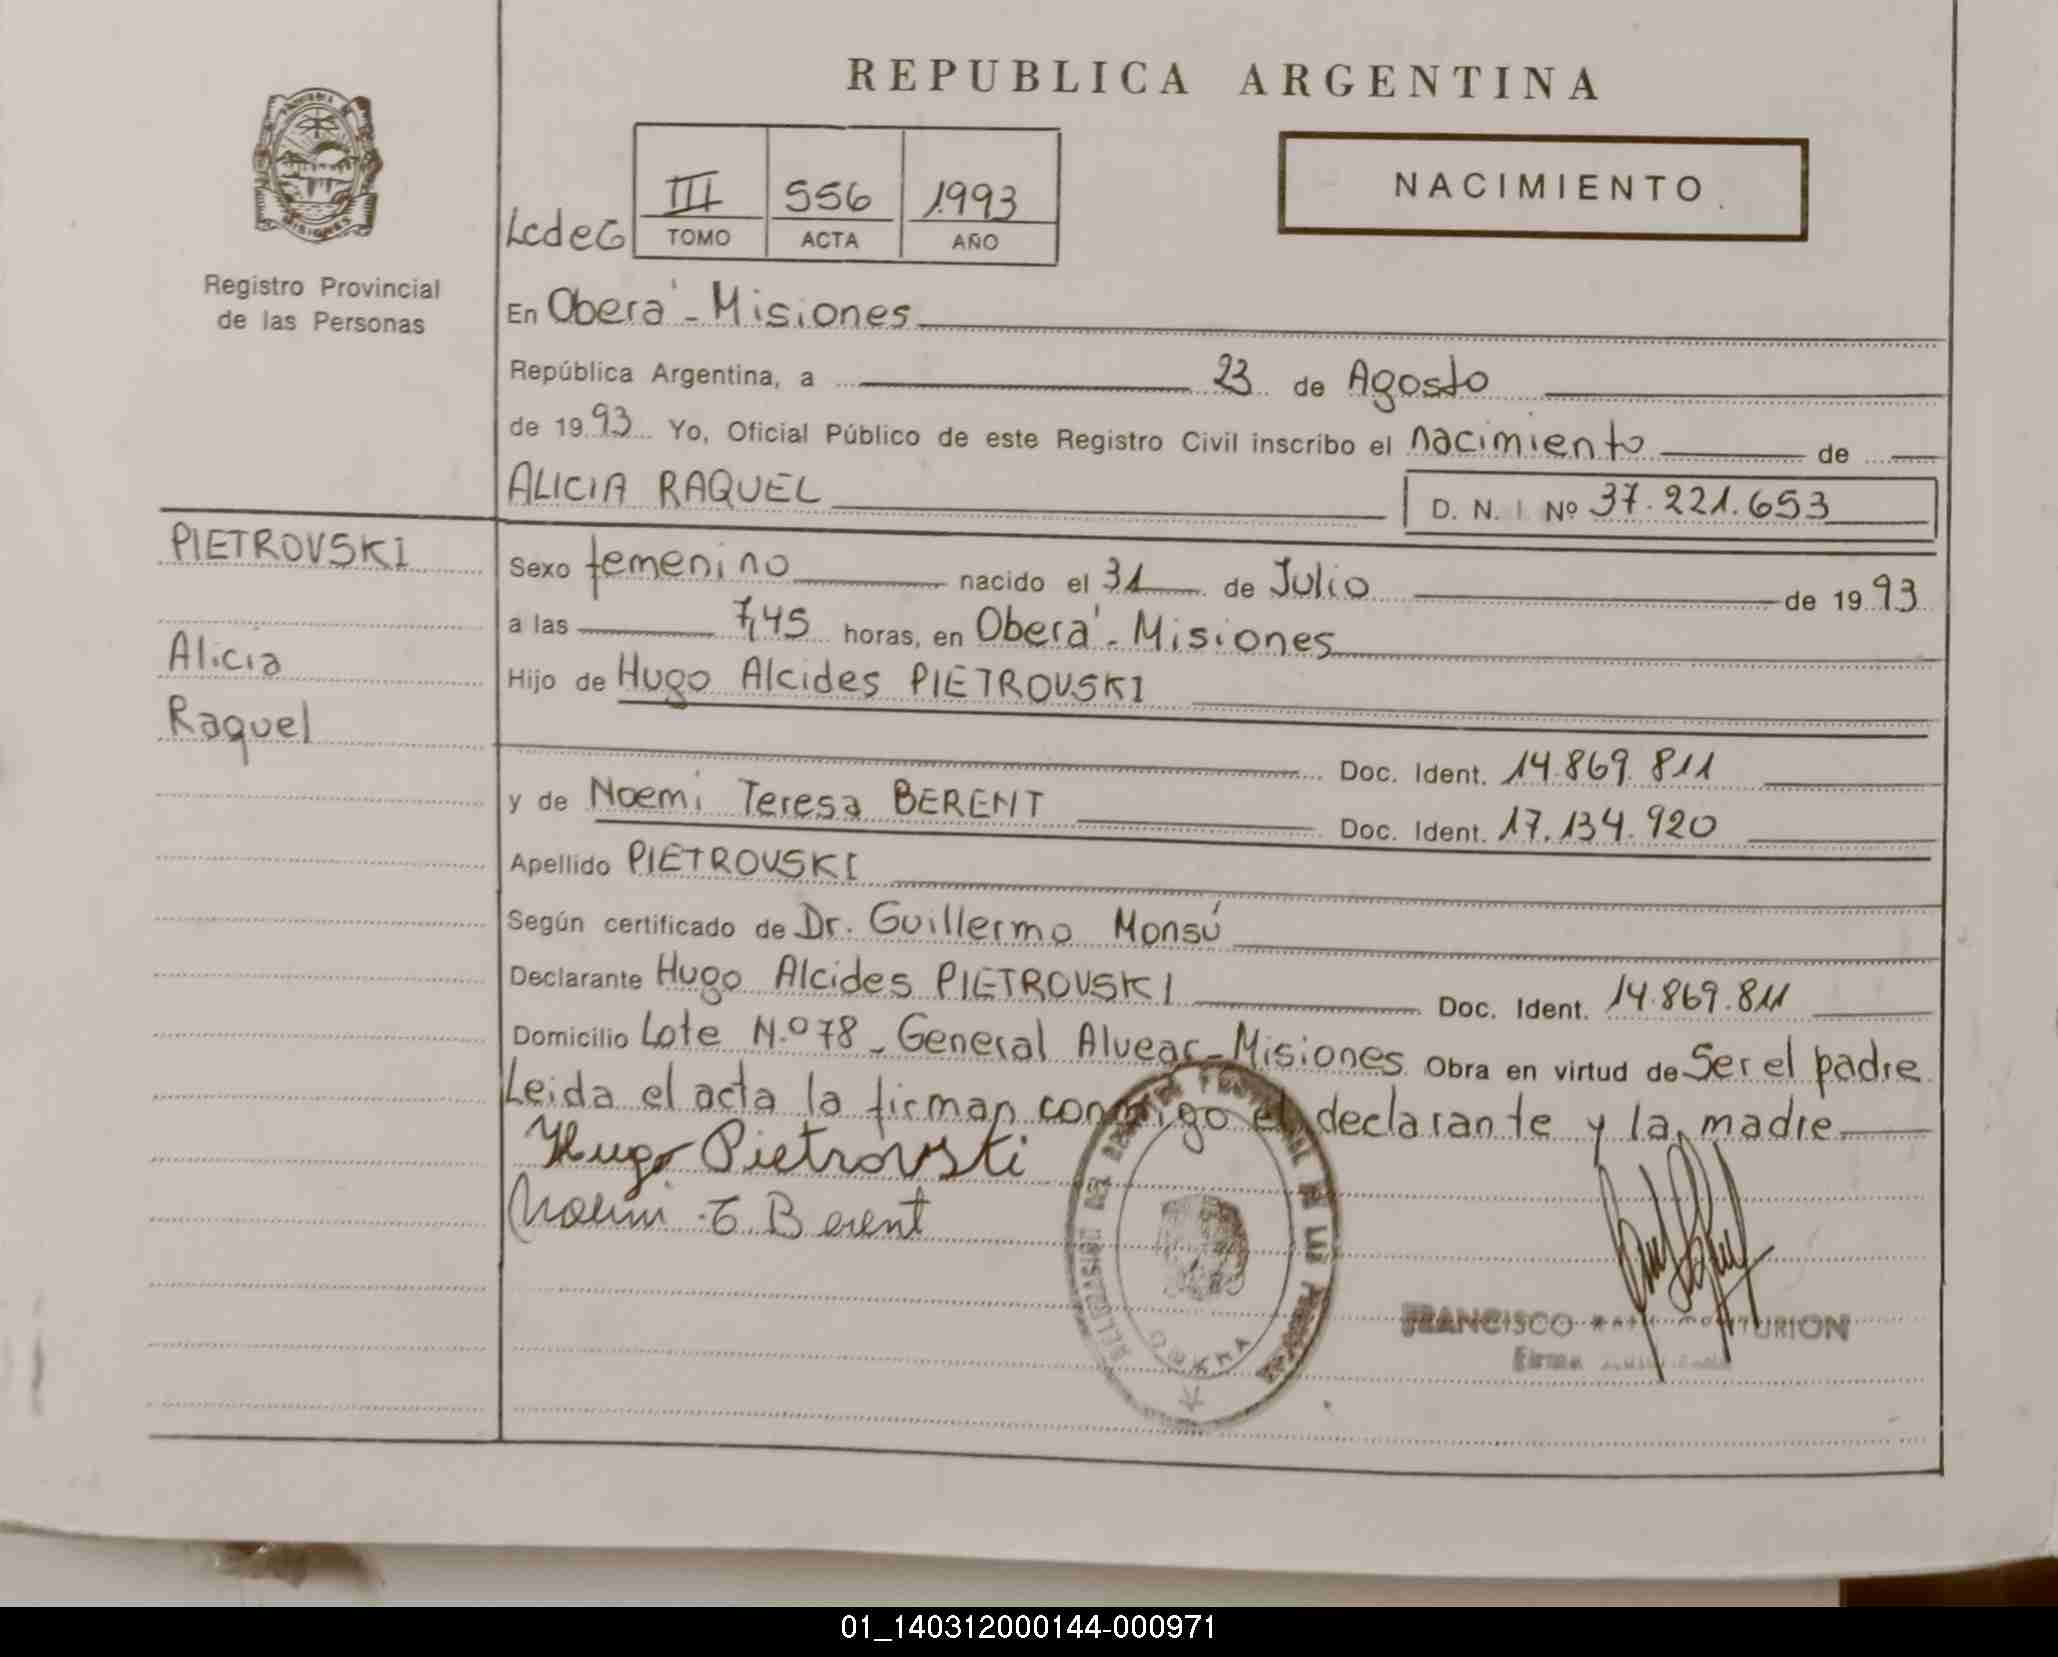 REPUBLICA ARGENTINA
NACIMIENTO
LcdeG
III 556 1993
TOMO ACTA AÑO
MISIONES
Registro Provincial
de las Personas
En Oberá - Misiones
República Argentina, a 23 de Agosto
de 1993 Yo, Oficial Público de este Registro Civil inscribo el nacimiento de
ALICIA RAQUEL D. N. I Nº 37.221.653
PIETROVSKI
Alicia
Raquel
Sexo femenino nacido el 31 de Julio de 1993
a las 7,45 horas, en Oberá - Misiones
Hijo de Hugo Alcides PIETROVSKI
Doc. Ident. 14.869.811
y de Noemi Teresa BERENT Doc. Ident. 17.134.920
Apellido PIETROVSKI
Según certificado de Dr. Guillermo Monsú
Declarante Hugo Alcides PIETROVSKI Doc. Ident. 14.869.811
Domicilio Lote N.º 78 - General Alvear - Misiones Obra en virtud de Ser el padre
Leida el acta la firman conmigo el declarante y la madre
Hugo Pietrovski
Noemi T. Berent
FRANCISCO
Firma
01_140312000144-000971